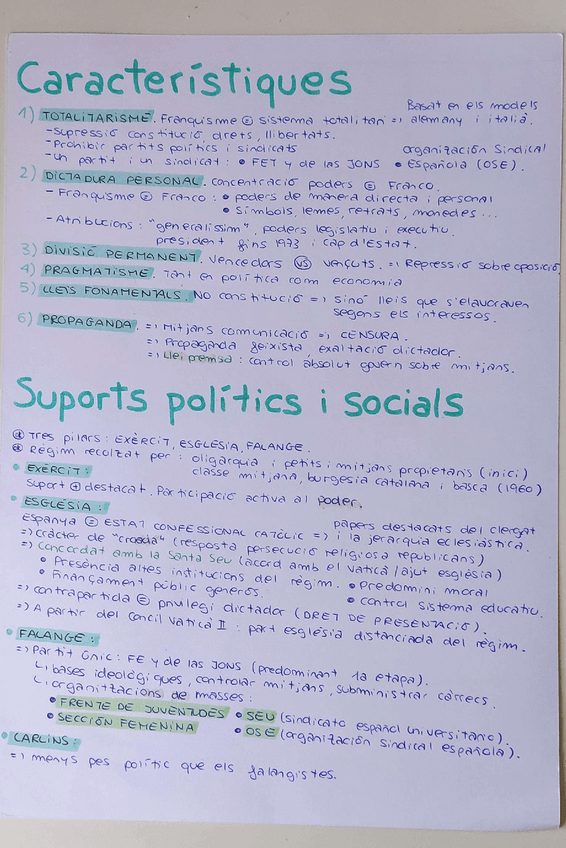 Característiques
Basat en els models
1) TOTALITARISME. Franquisme = sistema totalitari => alemany i italià.
-Supressió constitució, drets, llibertats.
-Prohibir partits polítics i sindicats
organización Sindical
-un partit i un sindicat: • FET y de las JONS • Española (OSE).
2) DICTADURA PERSONAL. Concentració poders = Franco.
- Franquisme = Franco: • poders de manera directa i personal
• Símbols, lemes, retrats, monedes...
- Atribucions: "generalíssim", poders legislatiu i executiu.
president fins 1973 i cap d'Estat.
3) DIVISIÓ PERMANENT. Vencedors VS vençuts. => Repressió sobre oposició
4) PRAGMATISME. Tant en política com economia
5) LLEIS FONAMENTALS. NO constitució => sinó lleis que s'elavoraven
segons els interessos.
6) PROPAGANDA. => Mitjans comunicació => CENSURA.
=> Propaganda feixista, exaltació dictador.
=> Llei premsa: control absolut govern sobre mitjans.
Suports polítics i socials
* Tres pilars: EXÈRCIT, ESGLÉSIA, FALANGE.
* Règim recolzat per: oligarquia i petits i mitjans propietaris (inici)
classe mitjana, burgesia catalana i basca (1960)
• EXÈRCIT:
Suport + destacat. Participació activa al poder.
• ESGLÉSIA:
papers destacats del clergat
Espanya = ESTAT CONFESSIONAL CATÒLIC => i la jerarquia eclesiàstica.
=> Caràcter de "croada" (resposta persecució religiosa republicans)
=> Concordat amb la Santa Seu (acord amb el Vaticà / ajut església)
• Presència altes institucions del règim. • Predomini moral
• Finançament públic generós. • control sistema educatiu.
=> contrapartida = privilegi dictador (DRET DE PRESENTACIÓ).
=> A partir del Concil Vaticà II: part església distanciada del règim.
• FALANGE:
=> Partit únic: FE y de las JONS (predominant 1a etapa).
↳ bases ideològiques, controlar mitjans, subministrar càrrecs.
↳ organitzacions de masses:
• FRENTE DE JUVENTUDES • SEU (sindicato español universitario).
• SECCIÓN FEMENINA • OSE (organización sindical española).
• CARLINS:
=> menys pes polític que els falangistes.